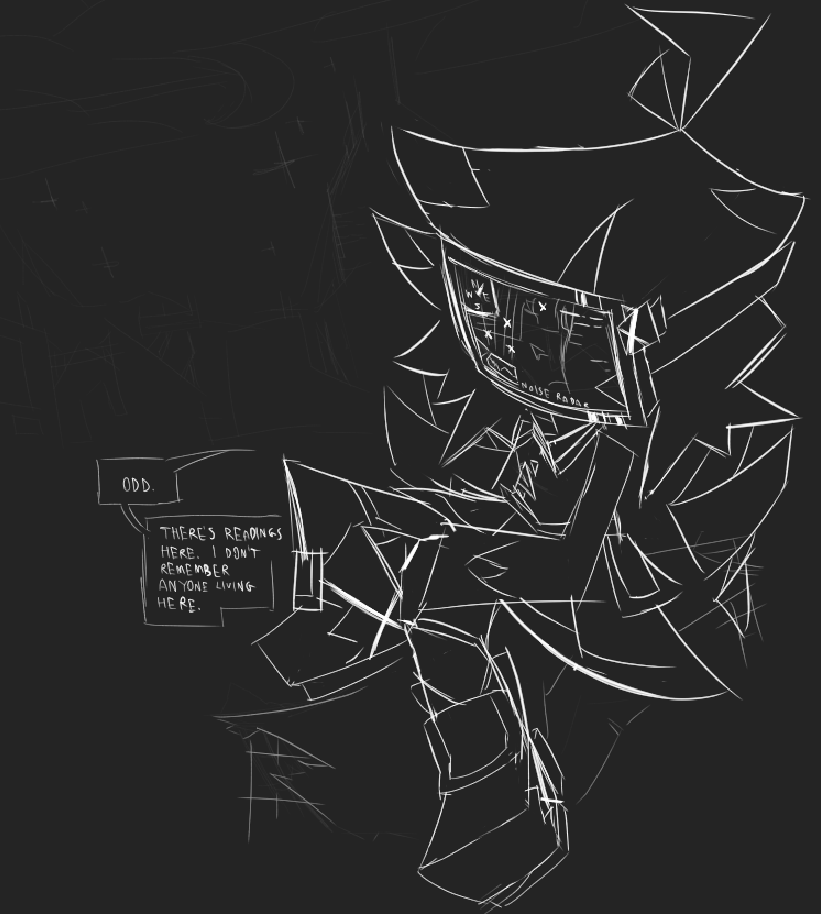 N
W E
S
NOISE RADAR
ODD.
THERE'S READINGS
HERE. I DON'T
REMEMBER
ANYONE LIVING
HERE.